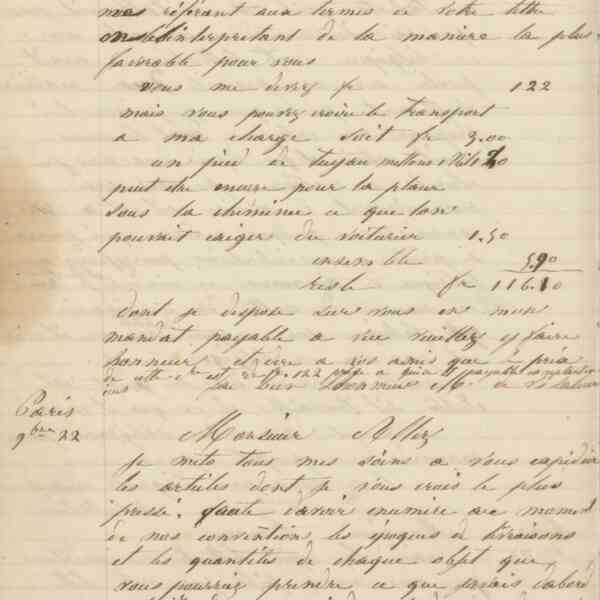 me référant aux termes de votre lettre
en l'interpretant de la manière la plus
favorable pour vous
vous me devez fr 122
mais vous pouvez croire le transport
a ma charge soit fr 3.00
un pied de tuyau mettons
peut etre encore pour la place
sous la cheminée a que l'on
pouvait exiger du voiturier 1.50
ensemble 5.90
reste fr 116.10
dont je dispose sur vous en mon
mandat payable a vue veuillez y faire
honneur et dire a vos amis que
de cette est 122 payable
Paris
9bre 22
Monsieur Allez
Je mets tous mes soins a vous expedier
les articles dont je vous crois le plus
pressé. faute d'avoir enuméré au moment
de nos conventions les époques de livraisons
et les quantités de chaque objet que
vous pourriez prendre a que j'avais d'abord